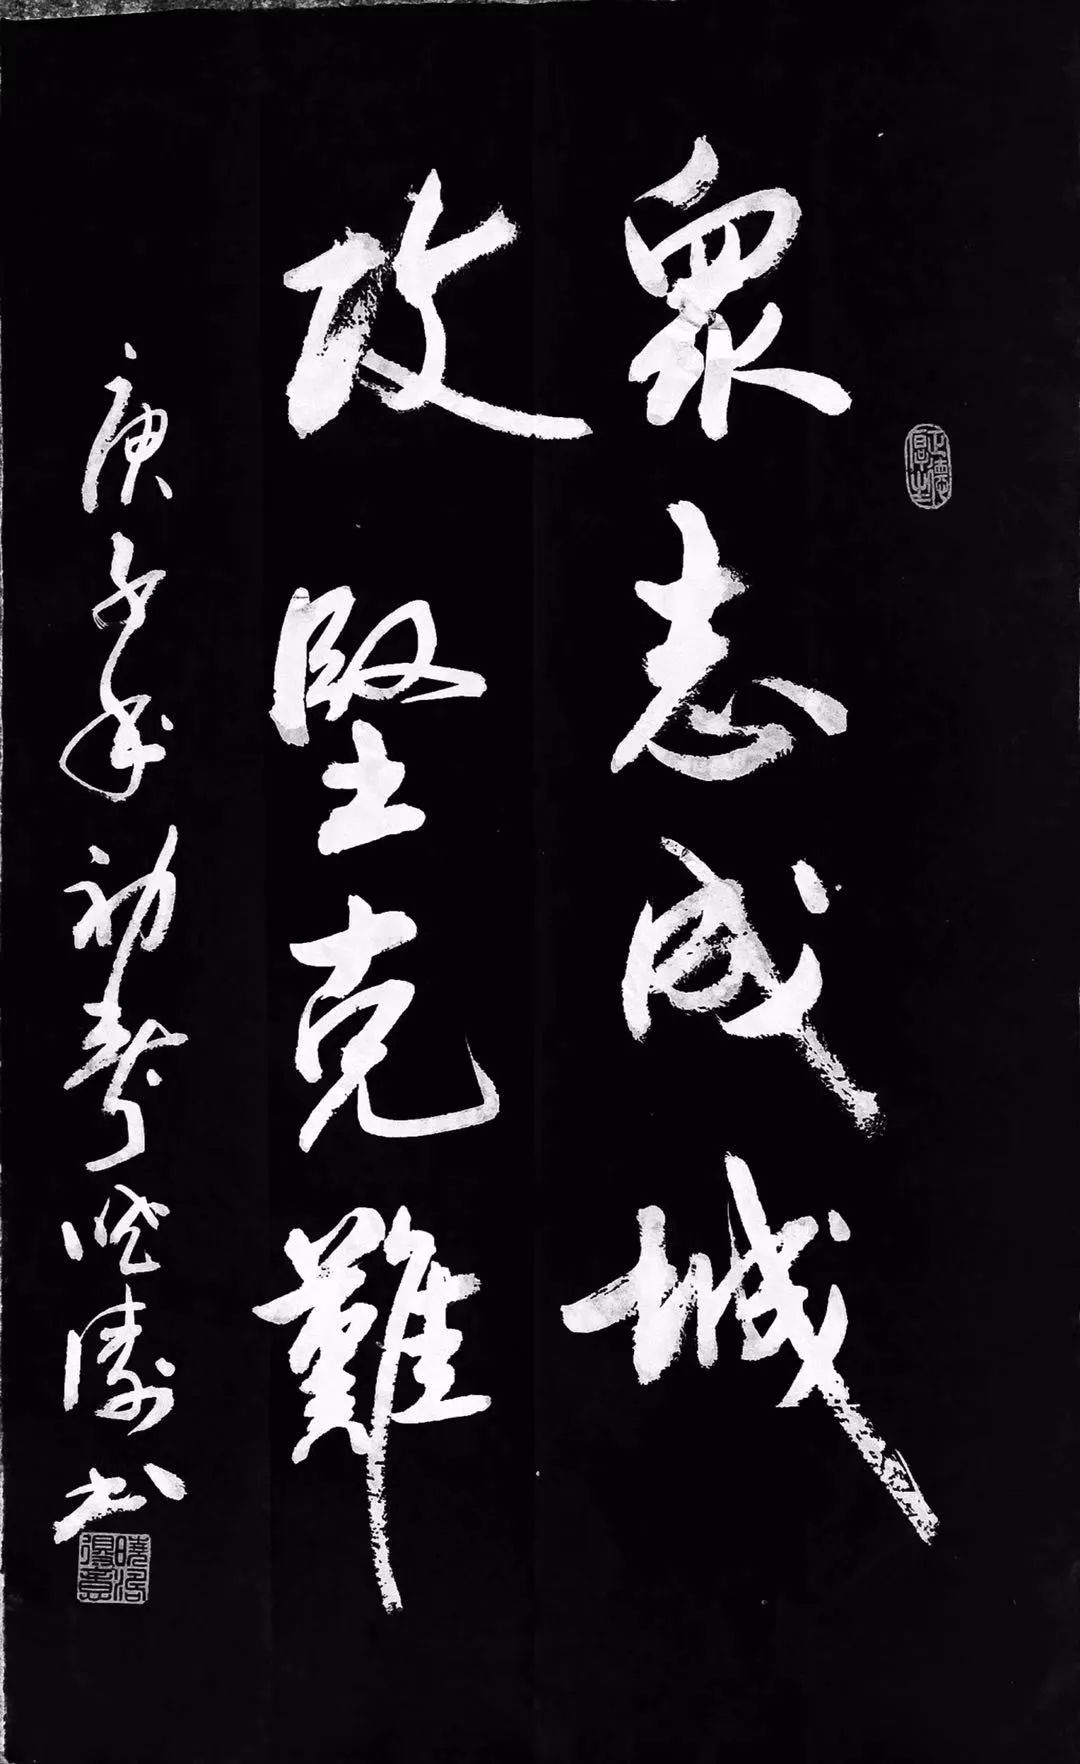 眾志成城
攻堅克難
庚子年初春曉濤书